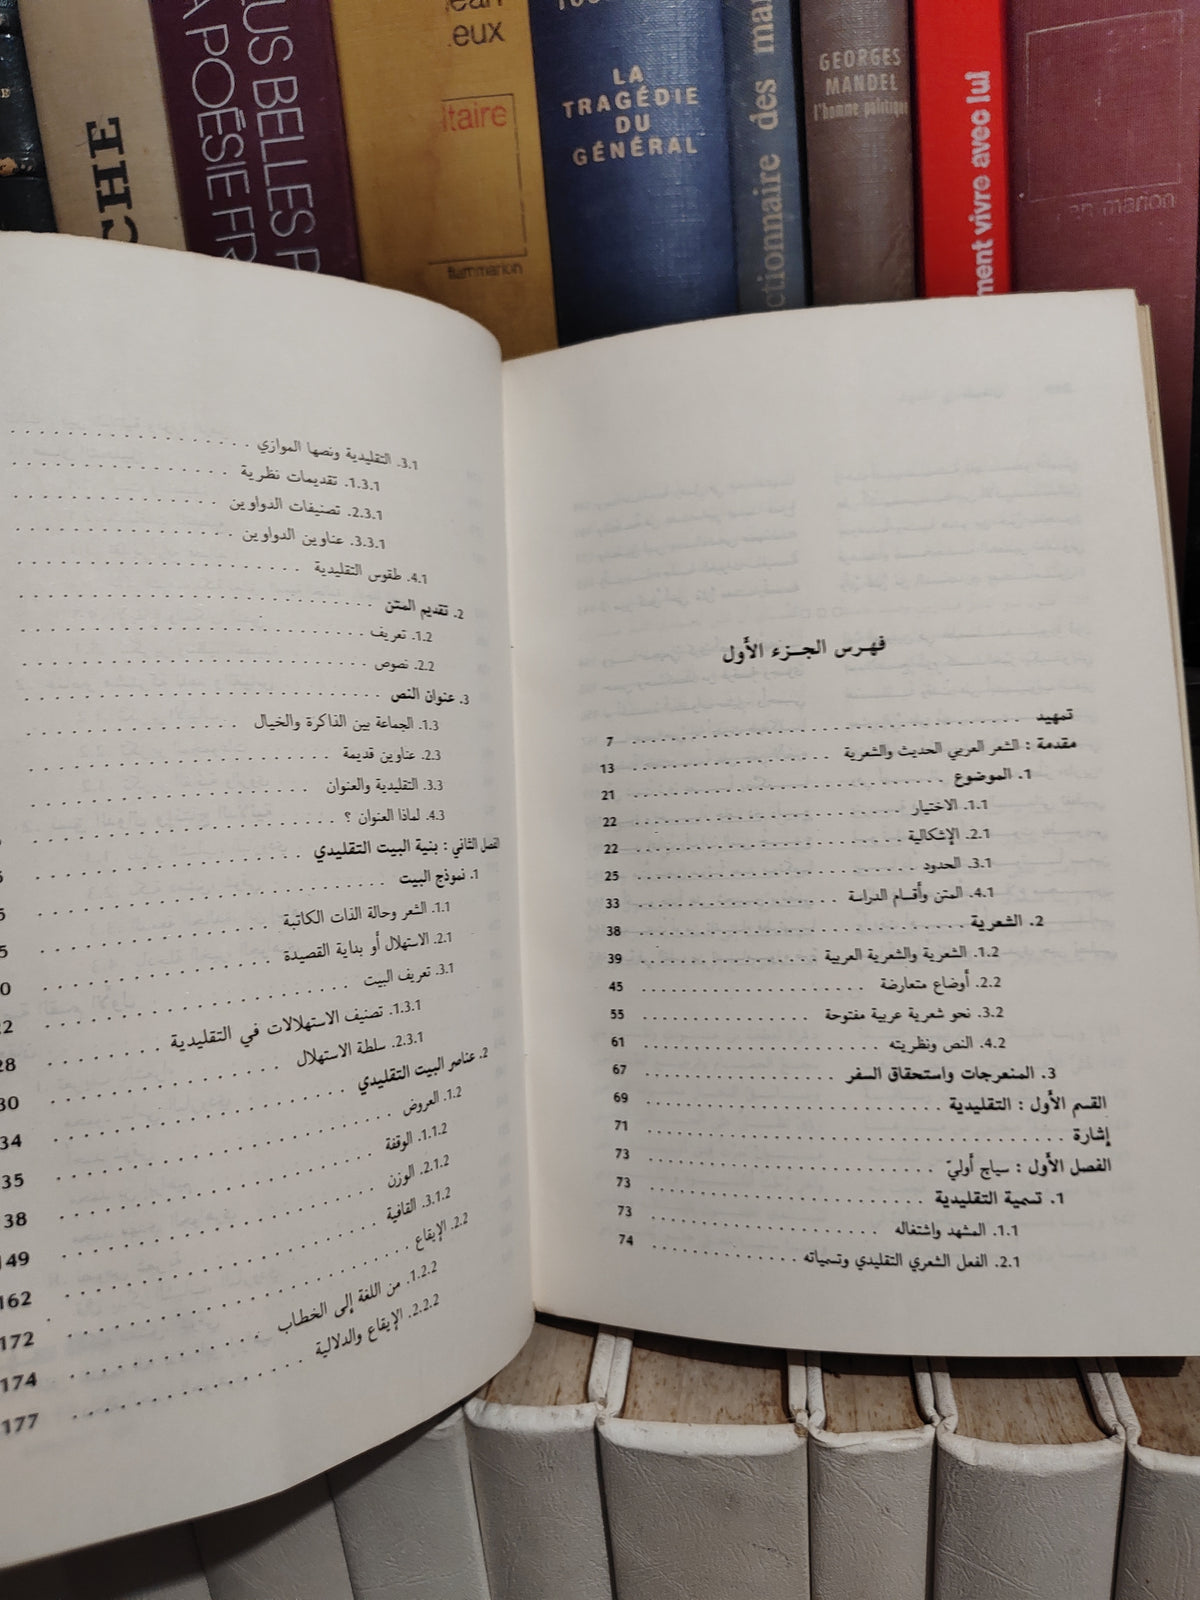 CHE
US BELLES P
A POÉSIE FR
eux
ltaire
flammarion
LA
TRAGÉDIE
DU
GÉNÉRAL
ctionnaire des mar
GEORGES
MANDEL
l'homme politique
ment vivre avec lui
فهرس الجزء الأول
تمهيد . . . . . . . . . . 7
مقدمة : الشعر العربي الحديث والشعرية . . . . . . . . . . 13
1. الموضوع . . . . . . . . . . 21
1.1. الاختيار . . . . . . . . . . 22
2.1. الإشكالية . . . . . . . . . . 22
3.1. الحدود . . . . . . . . . . 25
4.1. المتن وأقسام الدراسة . . . . . . . . . . 33
2. الشعرية . . . . . . . . . . 38
1.2. الشعرية والشعرية العربية . . . . . . . . . . 39
2.2. أوضاع متعارضة . . . . . . . . . . 45
3.2. نحو شعرية عربية مفتوحة . . . . . . . . . . 55
4.2. النص ونظريته . . . . . . . . . . 61
3. المنعرجات واستحقاق السفر . . . . . . . . . . 67
القسم الأول : التقليدية . . . . . . . . . . 69
إشارة . . . . . . . . . . 71
الفصل الأول : سياج أوليّ . . . . . . . . . . 73
1. تسمية التقليدية . . . . . . . . . . 73
1.1. المشهد واشتغاله . . . . . . . . . . 73
2.1. الفعل الشعري التقليدي وتسمياته . . . . . . . . . . 74
3.1. التقليدية ونصها الموازي . . . . . . . . . .
1.3.1. تقديمات نظرية . . . . . . . . . .
2.3.1. تصنيفات الدواوين . . . . . . . . . .
3.3.1. عناوين الدواوين . . . . . . . . . .
4.1. طقوس التقليدية . . . . . . . . . .
2. تقديم المتن . . . . . . . . . .
1.2. تعريف . . . . . . . . . .
2.2. نصوص . . . . . . . . . .
3. عنوان النص . . . . . . . . . .
1.3. الجماعة بين الذاكرة والخيال . . . . . . . . . .
2.3. عناوين قديمة . . . . . . . . . .
3.3. التقليدية والعنوان . . . . . . . . . .
4.3. لماذا العنوان ؟ . . . . . . . . . .
الفصل الثاني : بنية البيت التقليدي . . . . . . . . . .
1. نموذج البيت . . . . . . . . . . 5
1.1. الشعر وحالة الذات الكاتبة . . . . . . . . . . 5
2.1. الاستهلال أو بداية القصيدة . . . . . . . . . . 0
3.1. تعريف البيت . . . . . . . . . . 22
1.3.1. تصنيف الاستهلالات في التقليدية . . . . . . . . . . 28
2.3.1. سلطة الاستهلال . . . . . . . . . . 30
2. عناصر البيت التقليدي . . . . . . . . . . 34
1.2. العروض . . . . . . . . . . 35
1.1.2. الوقفة . . . . . . . . . . 38
2.1.2. الوزن . . . . . . . . . . 149
3.1.2. القافية . . . . . . . . . . 162
2.2. الإيقاع . . . . . . . . . . 172
1.2.2. من اللغة إلى الخطاب . . . . . . . . . . 174
2.2.2. الإيقاع والدلالية . . . . . . . . . . 177